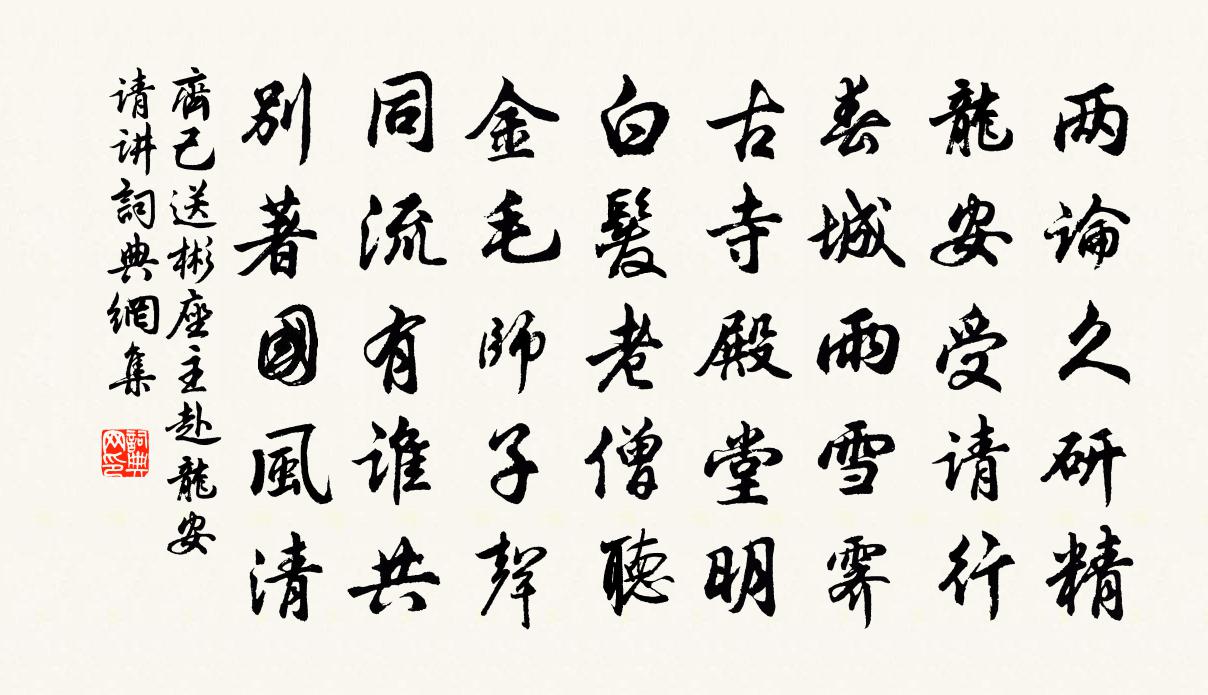 两論久研精
龍安受请行
春城雨雪霽
古寺殿堂明
白髮老僧聽
金毛師子聲
同流有誰共
別著國風清
齊己送彬座主赴龍安
请讲詞典網集
詞典网印